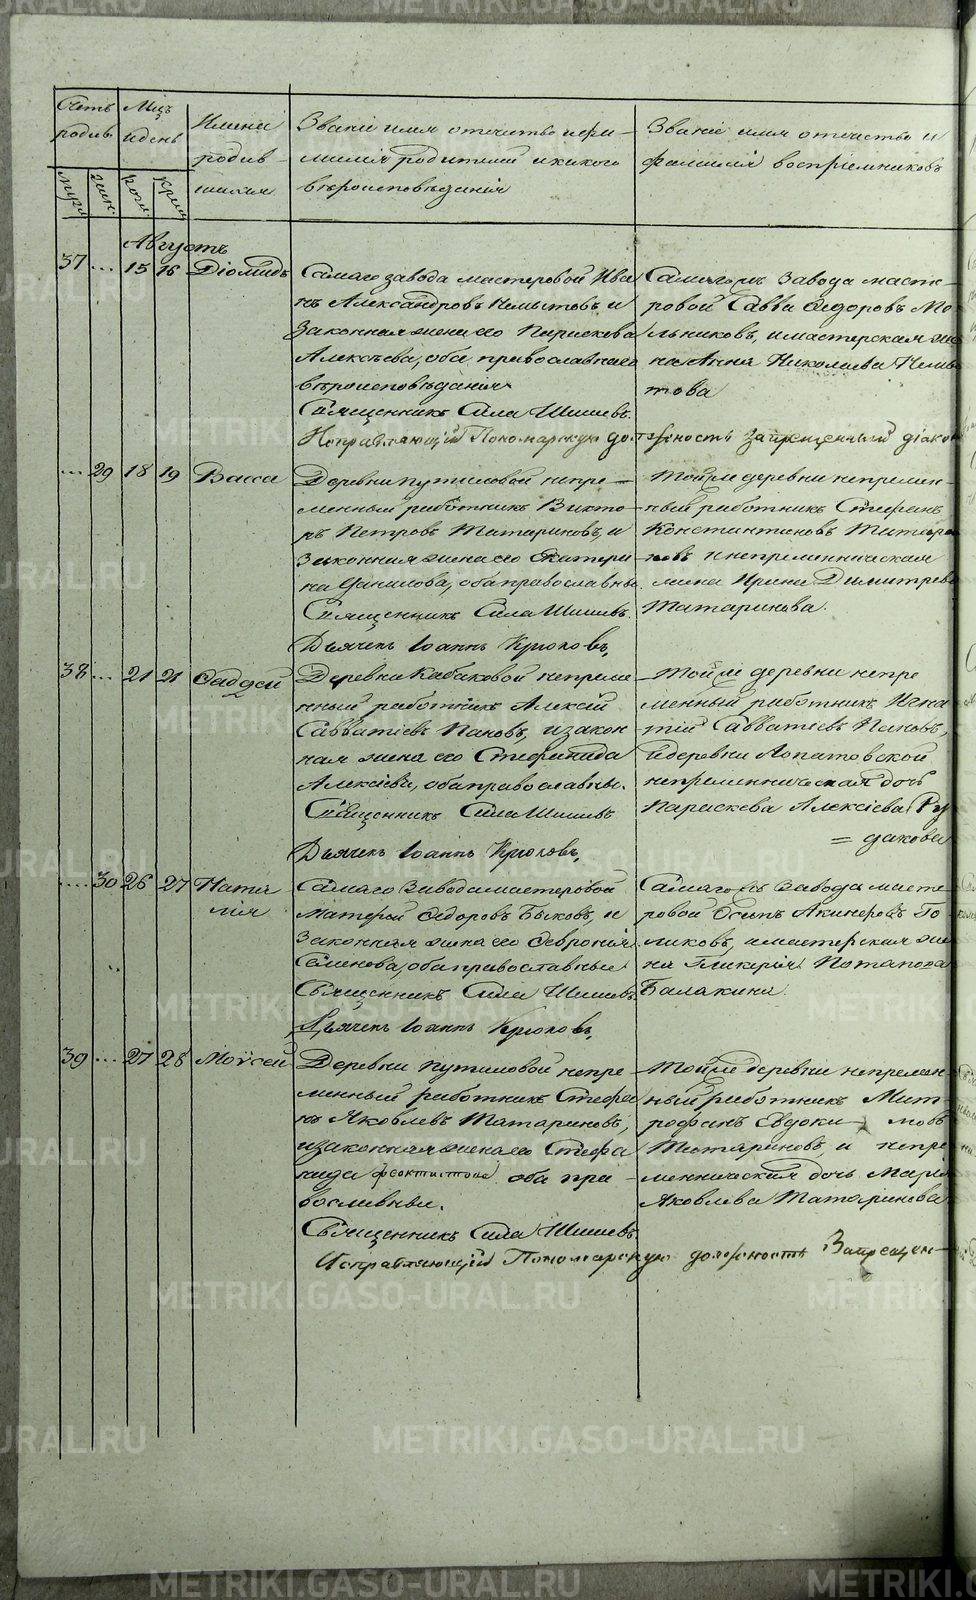 Счетъ родив.
Мцъ и день
Имена родив-шихся
Званіе имя отчество и фа-
милія родителей и какого
вѣроисповѣданія
Званіе имя отчество и
фамилія воспріемниковъ
муж. жен. рожд. крещ.
Августъ
37 ... 15 16 Діомидъ
Самаго завода мастеровой Ива
нъ Александровъ Немытовъ, и
Законная жена его Параскева
Алексѣева, оба православнаго
вѣроисповѣданія
Священникъ Сила Шишевъ.
Исправляющій Пономарскую должность Запрещенный діакон
Самагожъ Завода масте-
ровой Савва Ѳедоровъ Ме
льниковъ, и мастерская же
на Анна Николаева Немы
това
... 29 18 19 Васса
Деревни путиловой непре-
менный работникъ Викто-
ръ Петровъ Татариновъ, и
Законная жена его Екатери
на Данилова, оба православны.
Священникъ Сила Шишевъ.
Дьячекъ Іоаннъ Крюковъ,
Той же деревни непремен-
ный работникъ Стефанъ
Константиновъ Татари
новъ и непременническая
жена Ирина Димитрева
Татаринова.
38 ... 21 21 Фаддей
Деревни Кабаковой непреме
нный работникъ Алексій
Савватіевъ Пановъ, и закон
ная жена его Стефанида
Алексіева, оба православны.
Священникъ Сила Шишевъ
Дьячекъ Іоаннъ Крюковъ,
Той же деревни непре
менный работникъ Игна
тій Савватіевъ Пановъ,
и деревни Лопатовской
непременническая дочь
Параскева Алексіева Ру
= дакова
.... 30 26 27 Ната
лія
Самаго Завода мастеровой
Матвей Ѳедоровъ Быковъ, и
Законная жена его Февронія
Семенова, оба православные
Священникъ Сила Шишевъ.
Дьячекъ Іоаннъ Крюковъ,
Самагожъ Завода масте-
ровой Осипъ Го
ликовъ, и мастерская же
на Гликерія Потапова
Балакина
39 ... 27 28 Моѵсей
Деревни путиловой непре
менный работникъ Стефа
нъ Яковлевъ Татариновъ,
и законная жена его Стефа
нида Феоктистова оба пра-
вославные.
Священникъ Сила Шишевъ.
Исправляющій Пономарскую должность Запрещен-
Той же деревни непремен-
ный работникъ Мит-
рофанъ Евдоки-мовъ
Татариновъ, и непре
менническая дочь Марія
Яковлева Татаринова
METRIKI.GASO-URAL.RU